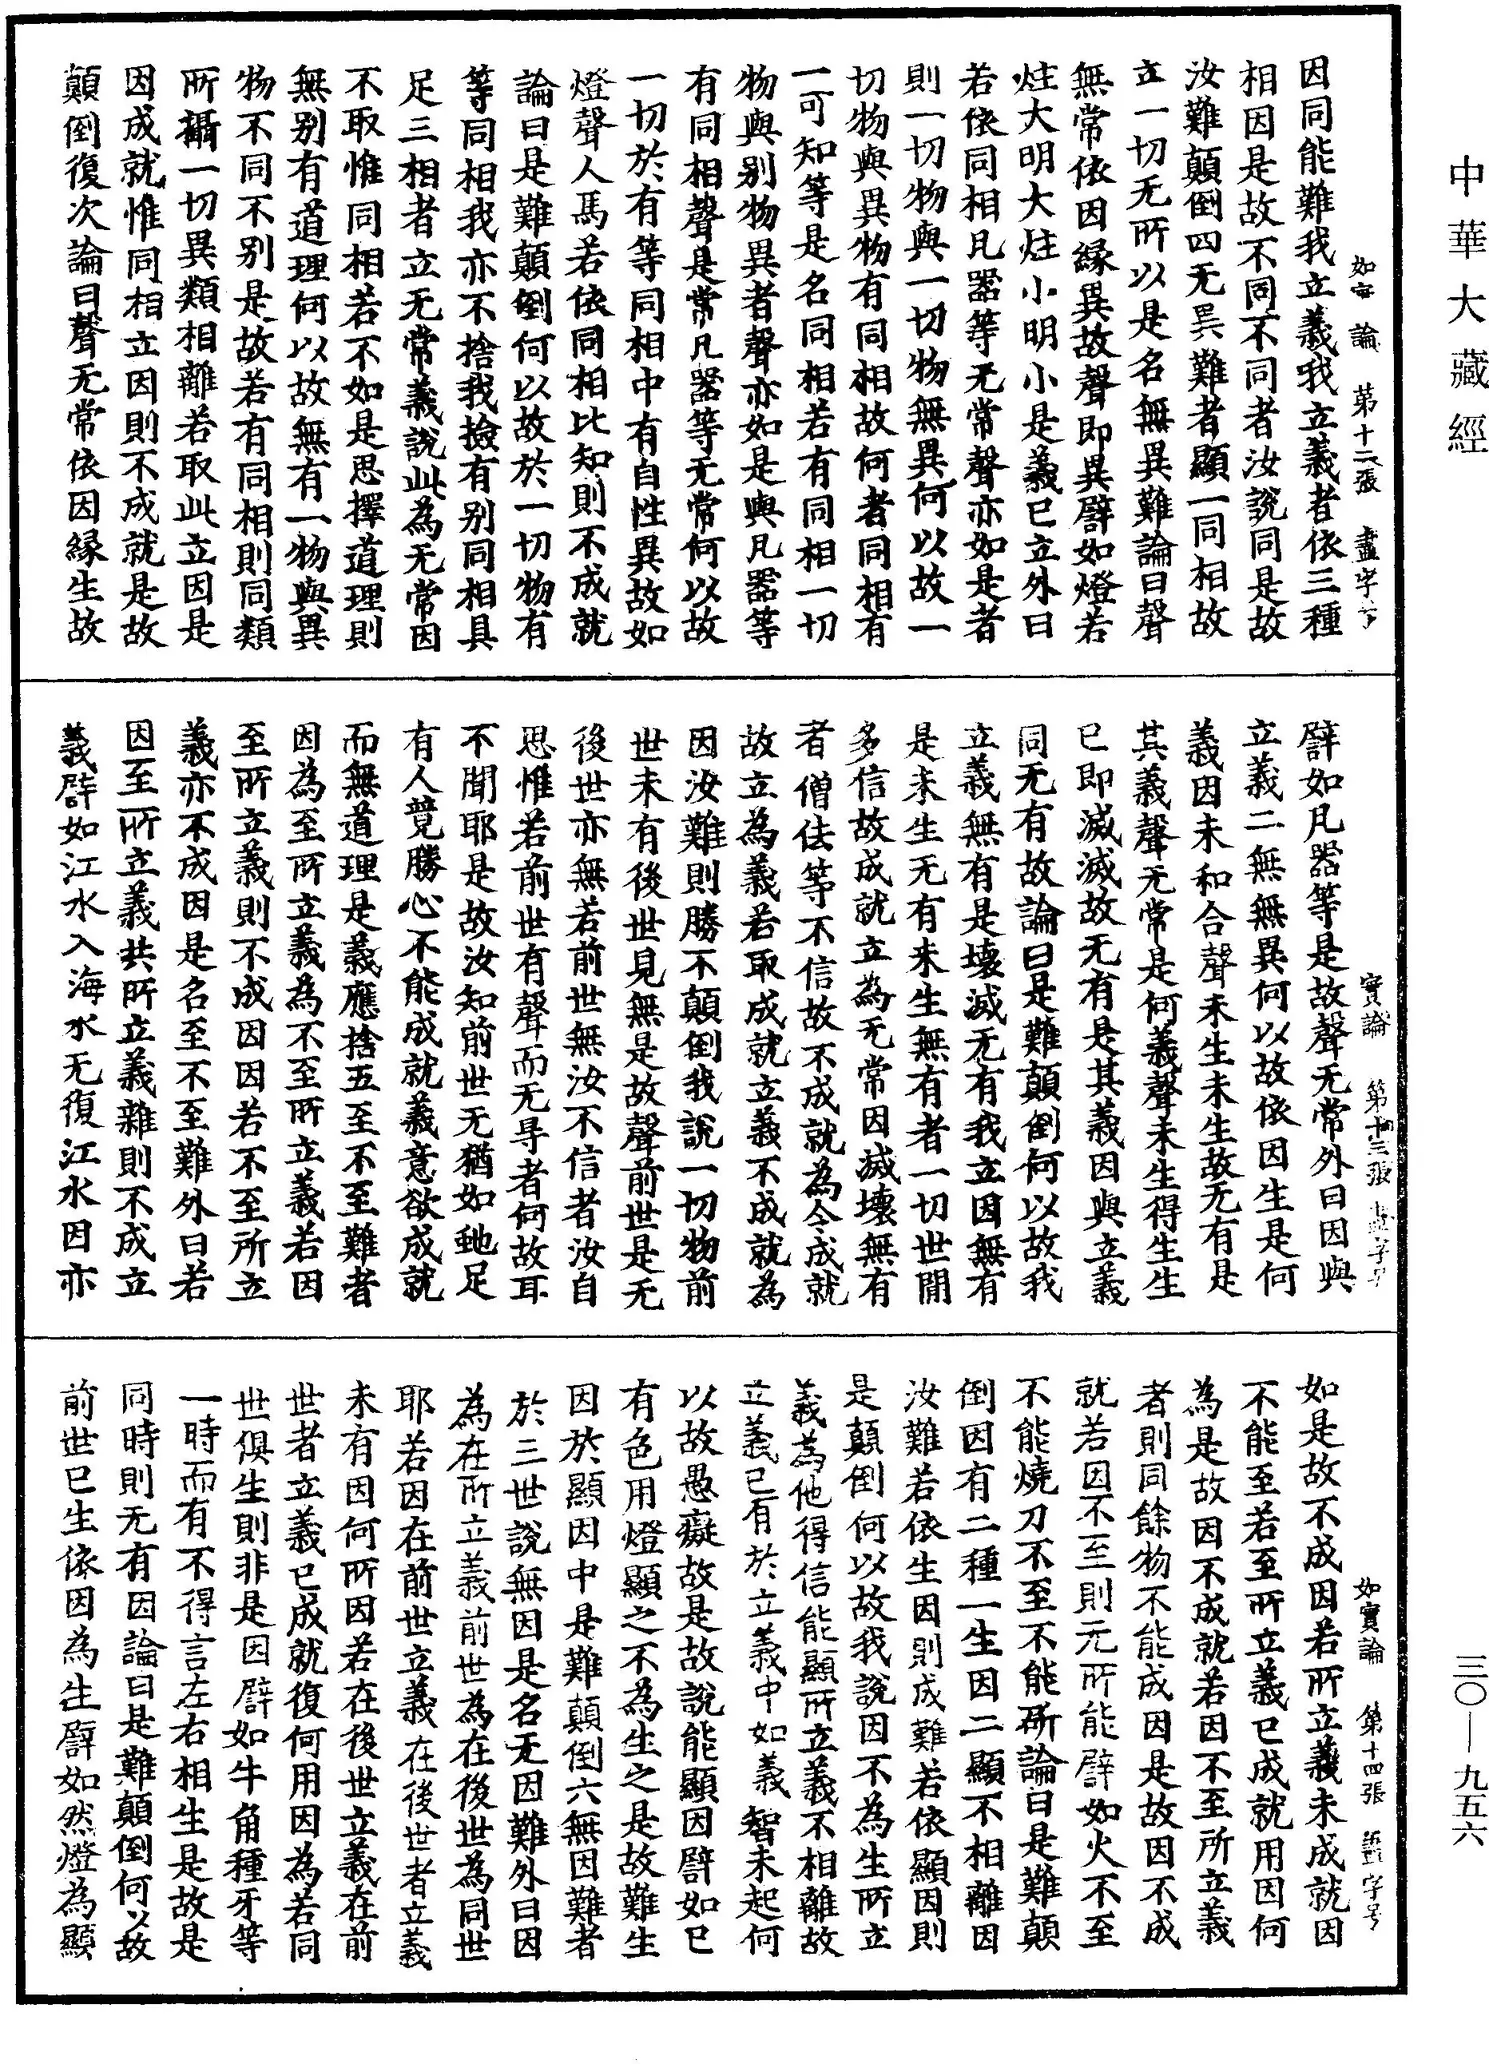 中華大藏經
因同能難我立義我立義者依三種
相因是故不同不同者汝說同是故
汝難顛倒四无異難者顯一同相故
立一切无所以是名無異難論曰聲
無常依因緣異故聲即異譬如燈若
炷大明大炷小明小是義已立外曰
若依同相凡器等无常聲亦如是者
則一切物與一切物無異何以故一
切物與異物有同相故何者同相有
一可知等是名同相若有同相一切
物與别物異者聲亦如是與凡器等
有同相聲是常凡器等无常何以故
一切於有等同相中有自性異故如
燈聲人馬若依同相比知則不成就
論曰是難顛倒何以故於一切物有
等同相我亦不捨我撿有别同相具
足三相者立无常義說此為无常因
不取惟同相若不如是思擇道理則
無别有道理何以故無有一物與異
物不同不别是故若有同相則同類
所攝一切異類相離若取此立因是
因成就惟同相立因則不成就是故
顛倒復次論曰聲无常依因緣生故
如實論 第十二張 盡字号
譬如凡器等是故聲无常外曰因與
立義二無無異何以故依因生是何
義因未和合聲未生未生故无有是
其義聲无常是何義聲未生得生生
已即滅滅故无有是其義因與立義
同无有故論曰是難顛倒何以故我
立義無有是壞滅无有我立因無有
是未生无有未生無有者一切世間
多信故成就立為无常因滅壞無有
者僧佉等不信故不成就為令成就
故立為義若取成就立義不成就為
因汝難則勝不顛倒我說一切物前
世未有後世見無是故聲前世是无
後世亦無若前世無汝不信者汝自
思惟若前世有聲而无㝵者何故耳
不聞耶是故汝知前世无猶如虵足
有人競勝心不能成就義意欲成就
而無道理是義應捨五至不至難者
因為至所立義為不至所立義若因
至所立義則不成因因若不至所立
義亦不成因是名至不至難外曰若
因至所立義共所立義雜則不成立
義譬如江水入海水无復江水因亦
實論 第十三張 盡字号
如是故不成因若所立義未成就因
不能至若至所立義已成就用因何
為是故因不成就若因不至所立義
者則同餘物不能成因是故因不成
就若因不至則无所能譬如火不至
不能燒刀不至不能斫論曰是難顛
倒因有二種一生因二顯不相離因
汝難若依生因則成難若依顯因則
是顛倒何以故我說因不為生所立
義為他得信能顯所立義不相離故
立義已有於立義中如義智未起何
以故愚癡故是故說能顯因譬如已
有色用燈顯之不為生之是故難生
因於顯因中是難顛倒六無因難者
於三世說無因是名无因難外曰因
為在所立義前世為在後世為同世
耶若因在前世立義在後世者立義
未有因何所因若在後世立義在前
世者立義已成就復何用因為若同
世俱生則非是因譬如牛角種牙等
一時而有不得言左右相生是故是
同時則无有因論曰是難顛倒何以故
前世已生依因為生譬如然燈為顯
如實論 第十四張 盡字号
三〇—九五六